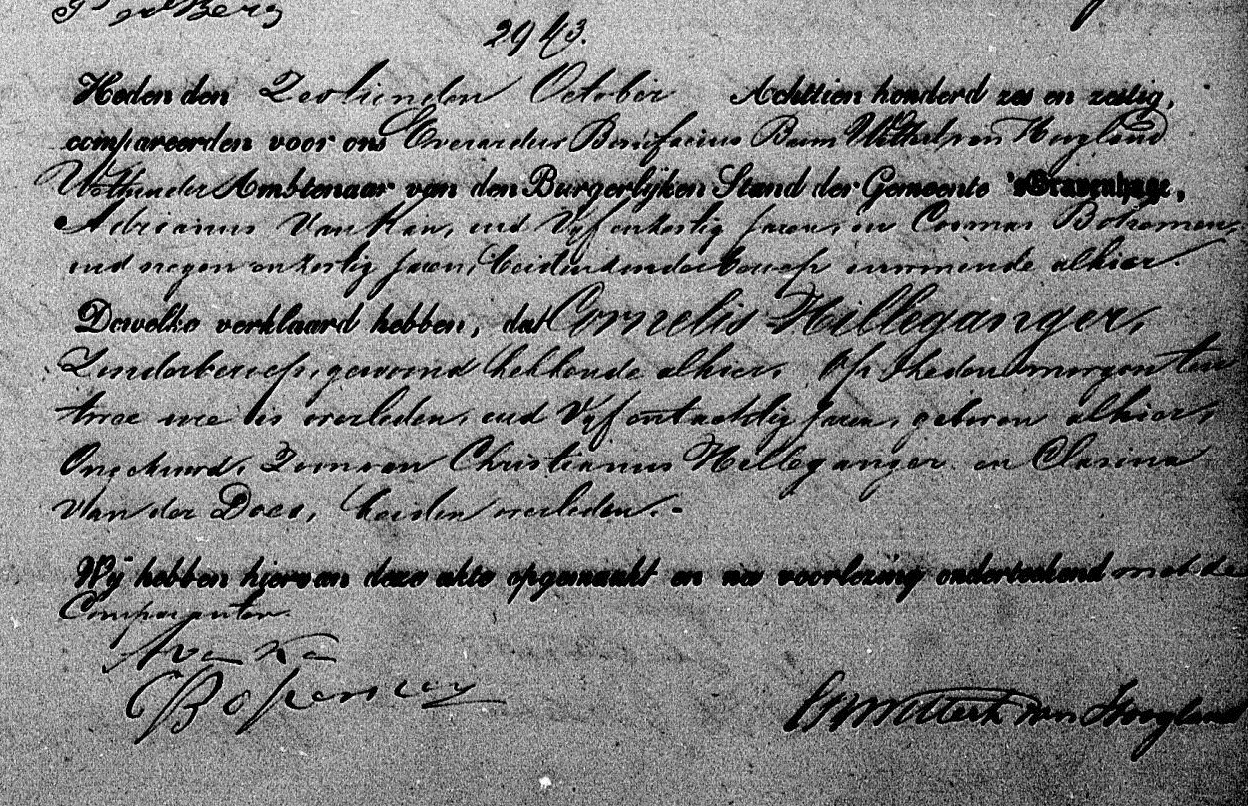 vd Berg
2943.
Heden den Zestienden October Achttien honderd zes en zestig,
compareerden voor ons Everardus Bonifacius Baum Witthert van Hoogland
Wethouder Ambtenaar van den Burgerlijken Stand der Gemeente 's Gravenhage,
Adrianus van Kan, oud Vijf en zestig Jaren, en Cosmas
oud negen en zestig Jaren, beiden zonder beroep wonende alhier.
Dewelke verklaard hebben, dat Cornelis Hilleganger,
Zonder beroep, gewoond hebbende alhier, Op heden morgen ten
twee ure is overleden, oud Vijf en tachtig Jaren, geboren alhier,
Ongehuwd, Zoon van Christianus Hilleganger en Clasina
van der Does, beiden overleden.-
Wij hebben hiervan deze akte opgemaakt en na voorlezing onderteekend met de
Comparanten.
A van Kan
C
van Hoogland